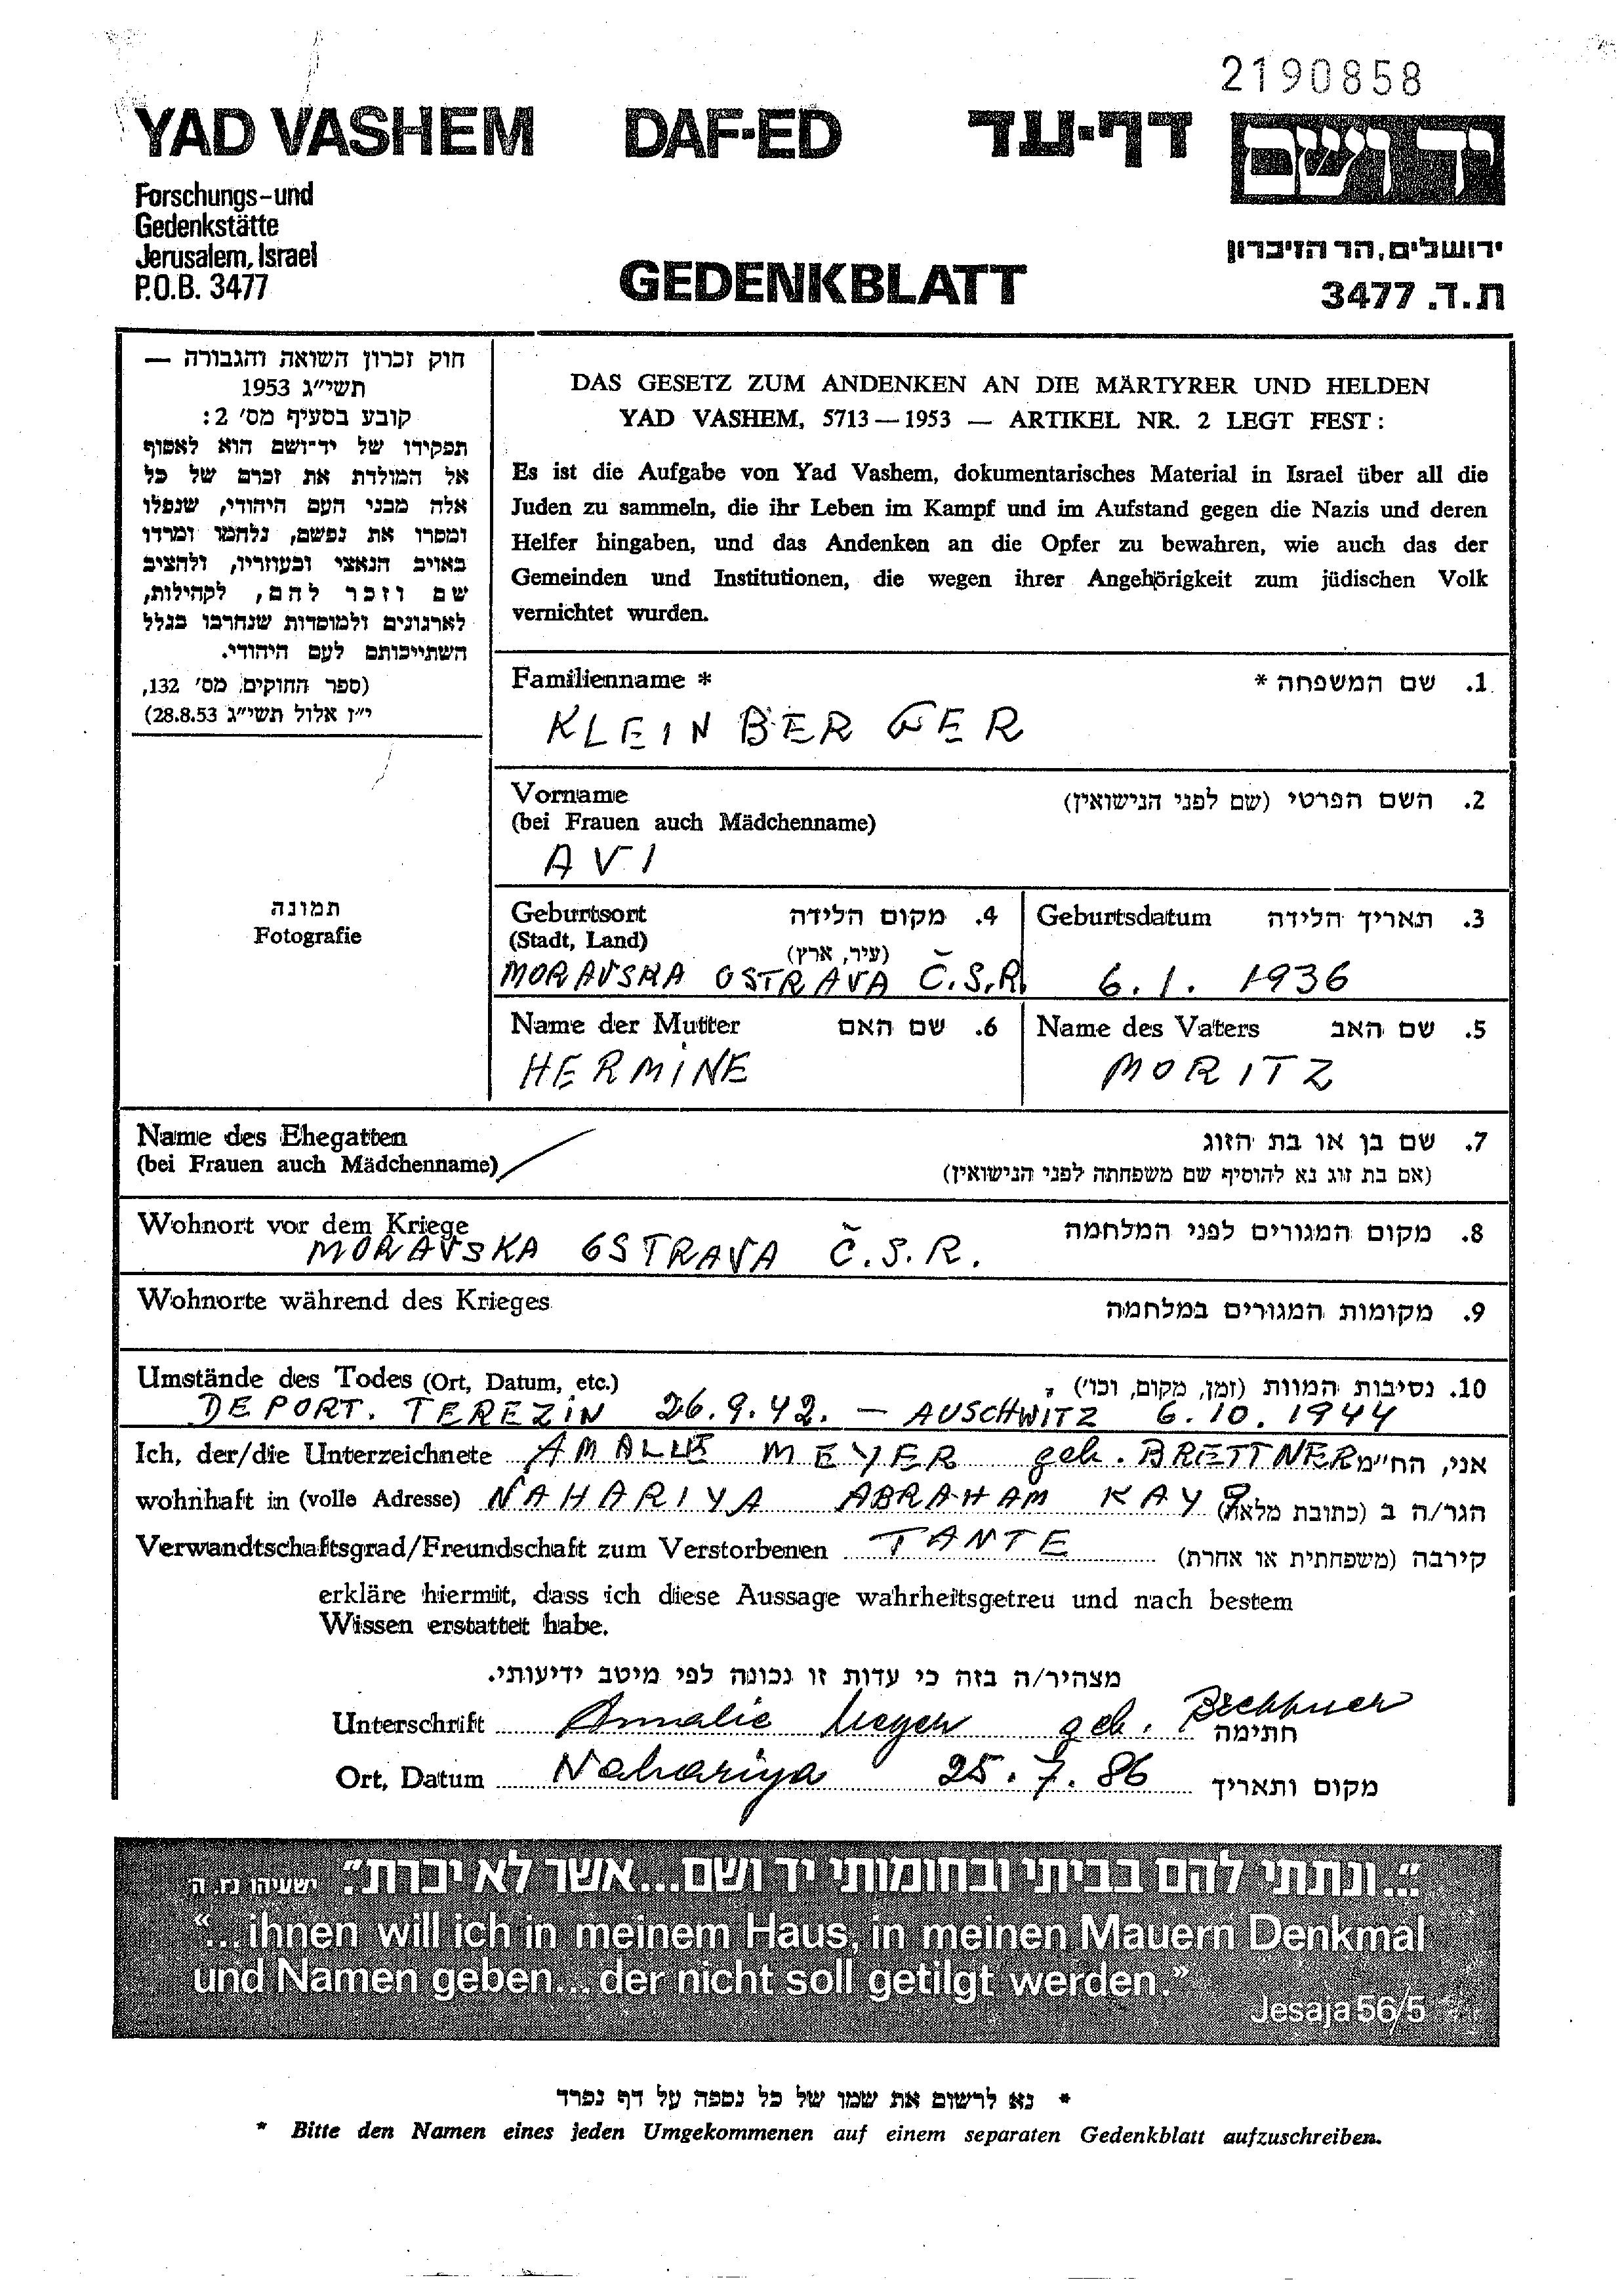 2190858
YAD VASHEM DAF-ED דף-עד יד ושם
Forschungs-und
Gedenkstätte
Jerusalem, Israel
P.O.B. 3477
GEDENKBLATT
ירושלים, הר הזיכרון
ת.ד. 3477
חוק זכרון השואה והגבורה —
תשי״ג 1953
קובע בסעיף מס׳ 2:
תפקידו של יד־ושם הוא לאסוף
אל המולדת את זכרם של כל
אלה מבני העם היהודי, שנפלו
ומסרו את נפשם, נלחמו ומרדו
באויב הנאצי ובעוזריו, ולהציב
שם וזכר להם, לקהילות,
לארגונים ולמוסדות שנחרבו בגלל
השתייכותם לעם היהודי.
(ספר החוקים מס׳ 132,
י״ז אלול תשי״ג 28.8.53)
תמונה
Fotografie
DAS GESETZ ZUM ANDENKEN AN DIE MÄRTYRER UND HELDEN
YAD VASHEM, 5713—1953 — ARTIKEL NR. 2 LEGT FEST:
Es ist die Aufgabe von Yad Vashem, dokumentarisches Material in Israel über all die
Juden zu sammeln, die ihr Leben im Kampf und im Aufstand gegen die Nazis und deren
Helfer hingaben, und das Andenken an die Opfer zu bewahren, wie auch das der
Gemeinden und Institutionen, die wegen ihrer Angehörigkeit zum jüdischen Volk
vernichtet wurden.
Familienname * 1. שם המשפחה *
KLEINBERGER
Vorname 2. השם הפרטי (שם לפני הנישואין)
(bei Frauen auch Mädchenname)
AVI
Geburtsort 4. מקום הלידה
(Stadt, Land) (עיר, ארץ)
MORAVSKA OSTRAVA Č.S.R.
Geburtsdatum 3. תאריך הלידה
6.1. 1936
Name der Mutter 6. שם האם
HERMINE
Name des Vaters 5. שם האב
MORITZ
Name des Ehegatten 7. שם בן או בת הזוג
(bei Frauen auch Mädchenname) (אם בת זוג נא להוסיף שם משפחתה לפני הנישואין)
Wohnort vor dem Kriege 8. מקום המגורים לפני המלחמה
MORAVSKA OSTRAVA Č.S.R.
Wohnorte während des Krieges 9. מקומות המגורים במלחמה
Umstände des Todes (Ort, Datum, etc.) 10. נסיבות המוות (זמן, מקום, וכו׳)
DEPORT. TEREZIN 26.9.42. — AUSCHWITZ 6.10.1944
Ich, der/die Unterzeichnete AMALIE MEYER geb. BRETTNER אני, הח״מ
wohnhaft in (volle Adresse) NAHARIYA ABRAHAM KAY 9 הגר/ה ב (כתובת מלאה)
Verwandtschaftsgrad/Freundschaft zum Verstorbenen TANTE קירבה (משפחתית או אחרת)
erkläre hiermit, dass ich diese Aussage wahrheitsgetreu und nach bestem
Wissen erstattet habe.
מצהיר/ה בזה כי עדות זו נכונה לפי מיטב ידיעותי.
Unterschrift Amalie Meyer geb. Brettner חתימה
Ort, Datum Nahariya 25.7.86 מקום ותאריך
״...ונתתי להם בביתי ובחומותי יד ושם...אשר לא יכרת״. ישעיהו נז, ה
“...ihnen will ich in meinem Haus, in meinen Mauern Denkmal
und Namen geben... der nicht soll getilgt werden.”
Jesaja 56/5
* נא לרשום את שמו של כל נספה על דף נפרד
* Bitte den Namen eines jeden Umgekommenen auf einem separaten Gedenkblatt aufzuschreiben.